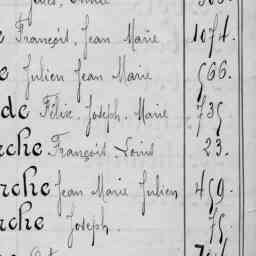 François, Jean Marie 1074.
Julien Jean Marie 566.
de Félix, Joseph, Marie 735
rche François-Louis 23.
arche Jean Marie Julien 459.
arche Joseph. 75.